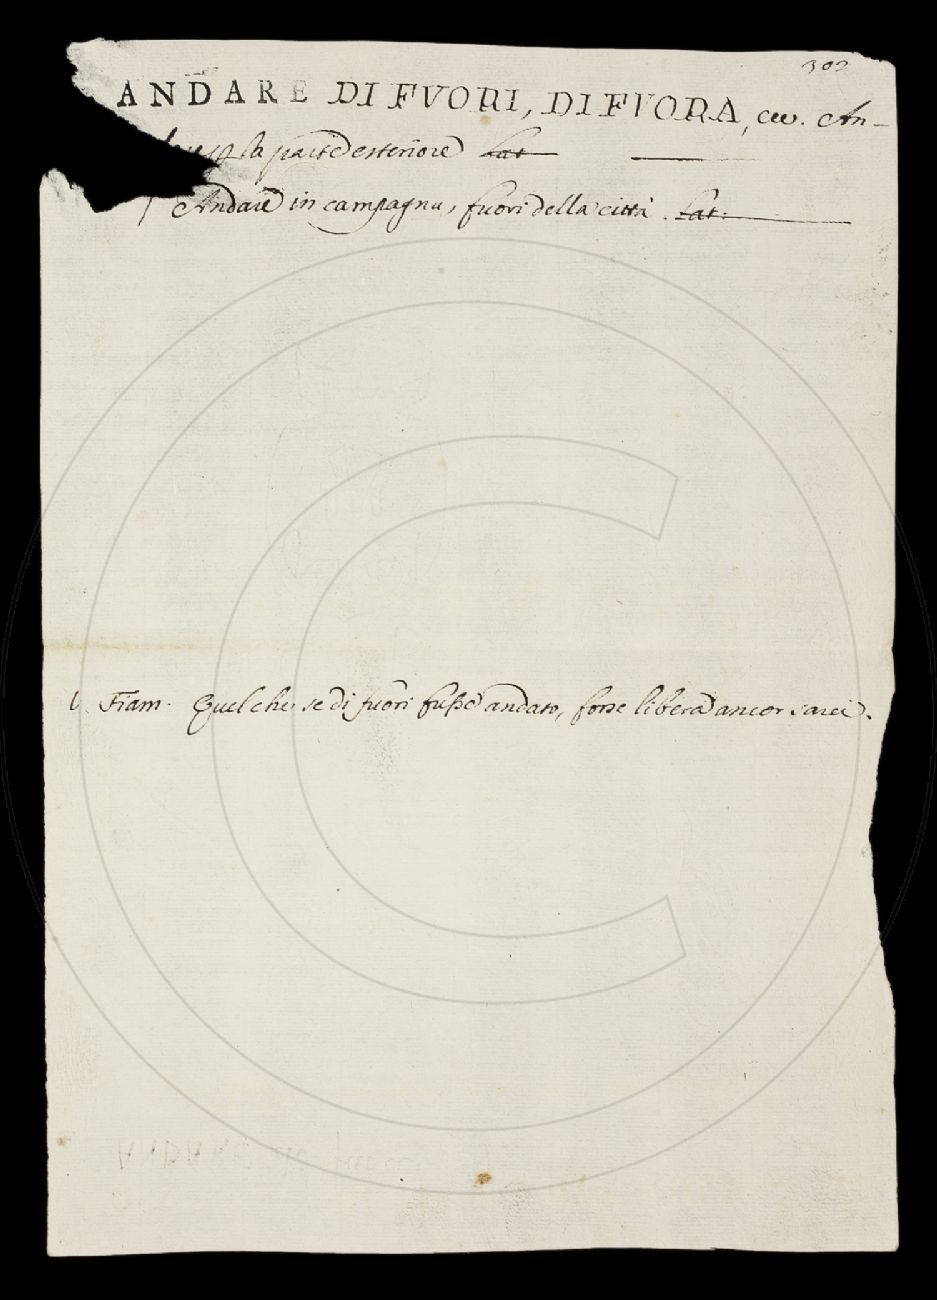 302
ANDARE DI FVORI, DI FVORA, ec. An-
la parte esteriore Lat
Andare in campagna, fuori della città. Lat.
Fiam. Quel che se di fuori fusse andato, forse libera ancor sarei.